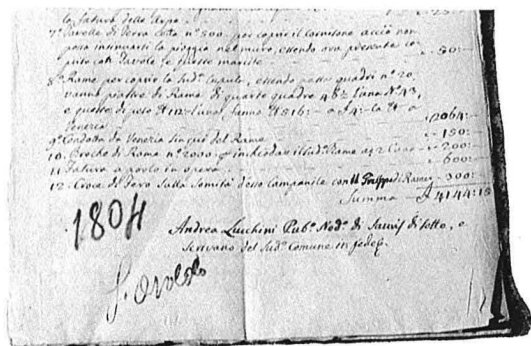 la fatura della
7° Tavelle di Terra cotta n° 500 per coprir il Cornisone acciò non
possi intimarsi la pioggia nel muro, essendo ora presente co
perto con Tavole, e queste marcite - 50:-
8° Rame per coprir la Sud.a Cupula, essendo passa quadri n° 20
di Rame di quarte quadre l'una N° 43,
e queste di peso l'una, fanno 516:- a 4:- la
Venezia 2064:-
9° Condotta da Venezia sin qui del Rame - 150:-
10. Broche di Rame n° 2000 p inchiodar il sud.° Rame a 2 l'una - 200:-
11. Fatura a porlo in opera - 600:-
12. Croce di Ferro sulla Somità dello Campanile con il di Rame 300:-
Summa 4144:18
1804
Andrea Lucchini Pub.° Nod.° di Sauris di Sotto, e
Scrivano del Sud.° Comune in fede